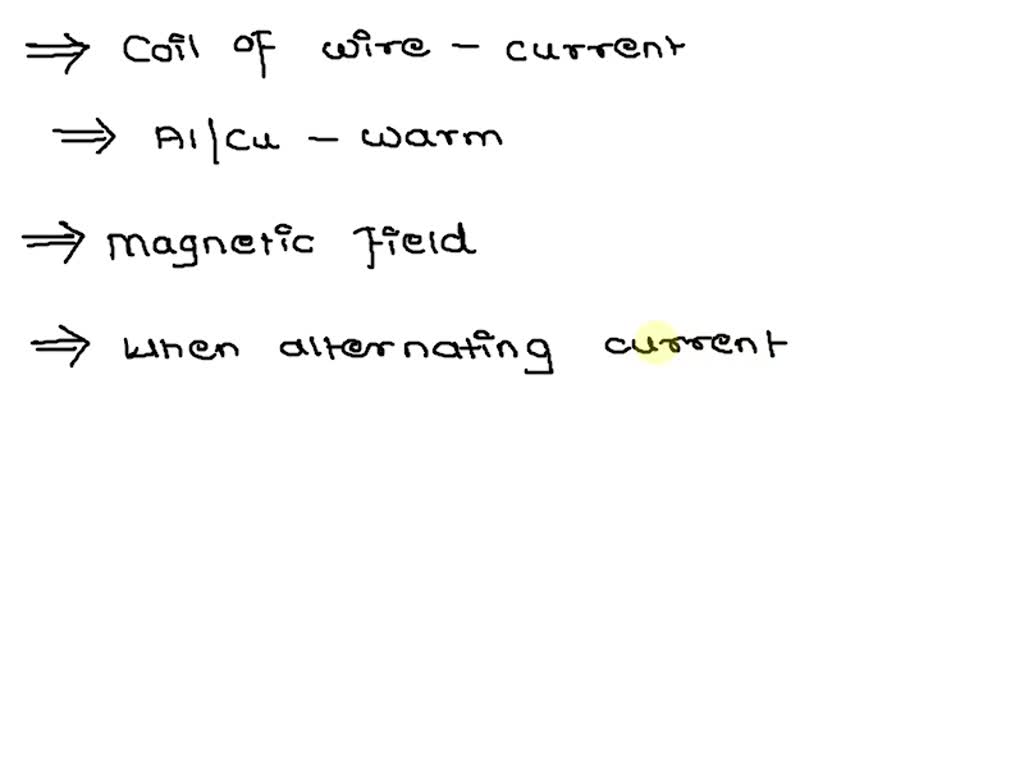 ⇒ Coil of wire - current
⇒ Al/Cu - warm
⇒ Magnetic Field
⇒ When alternating current